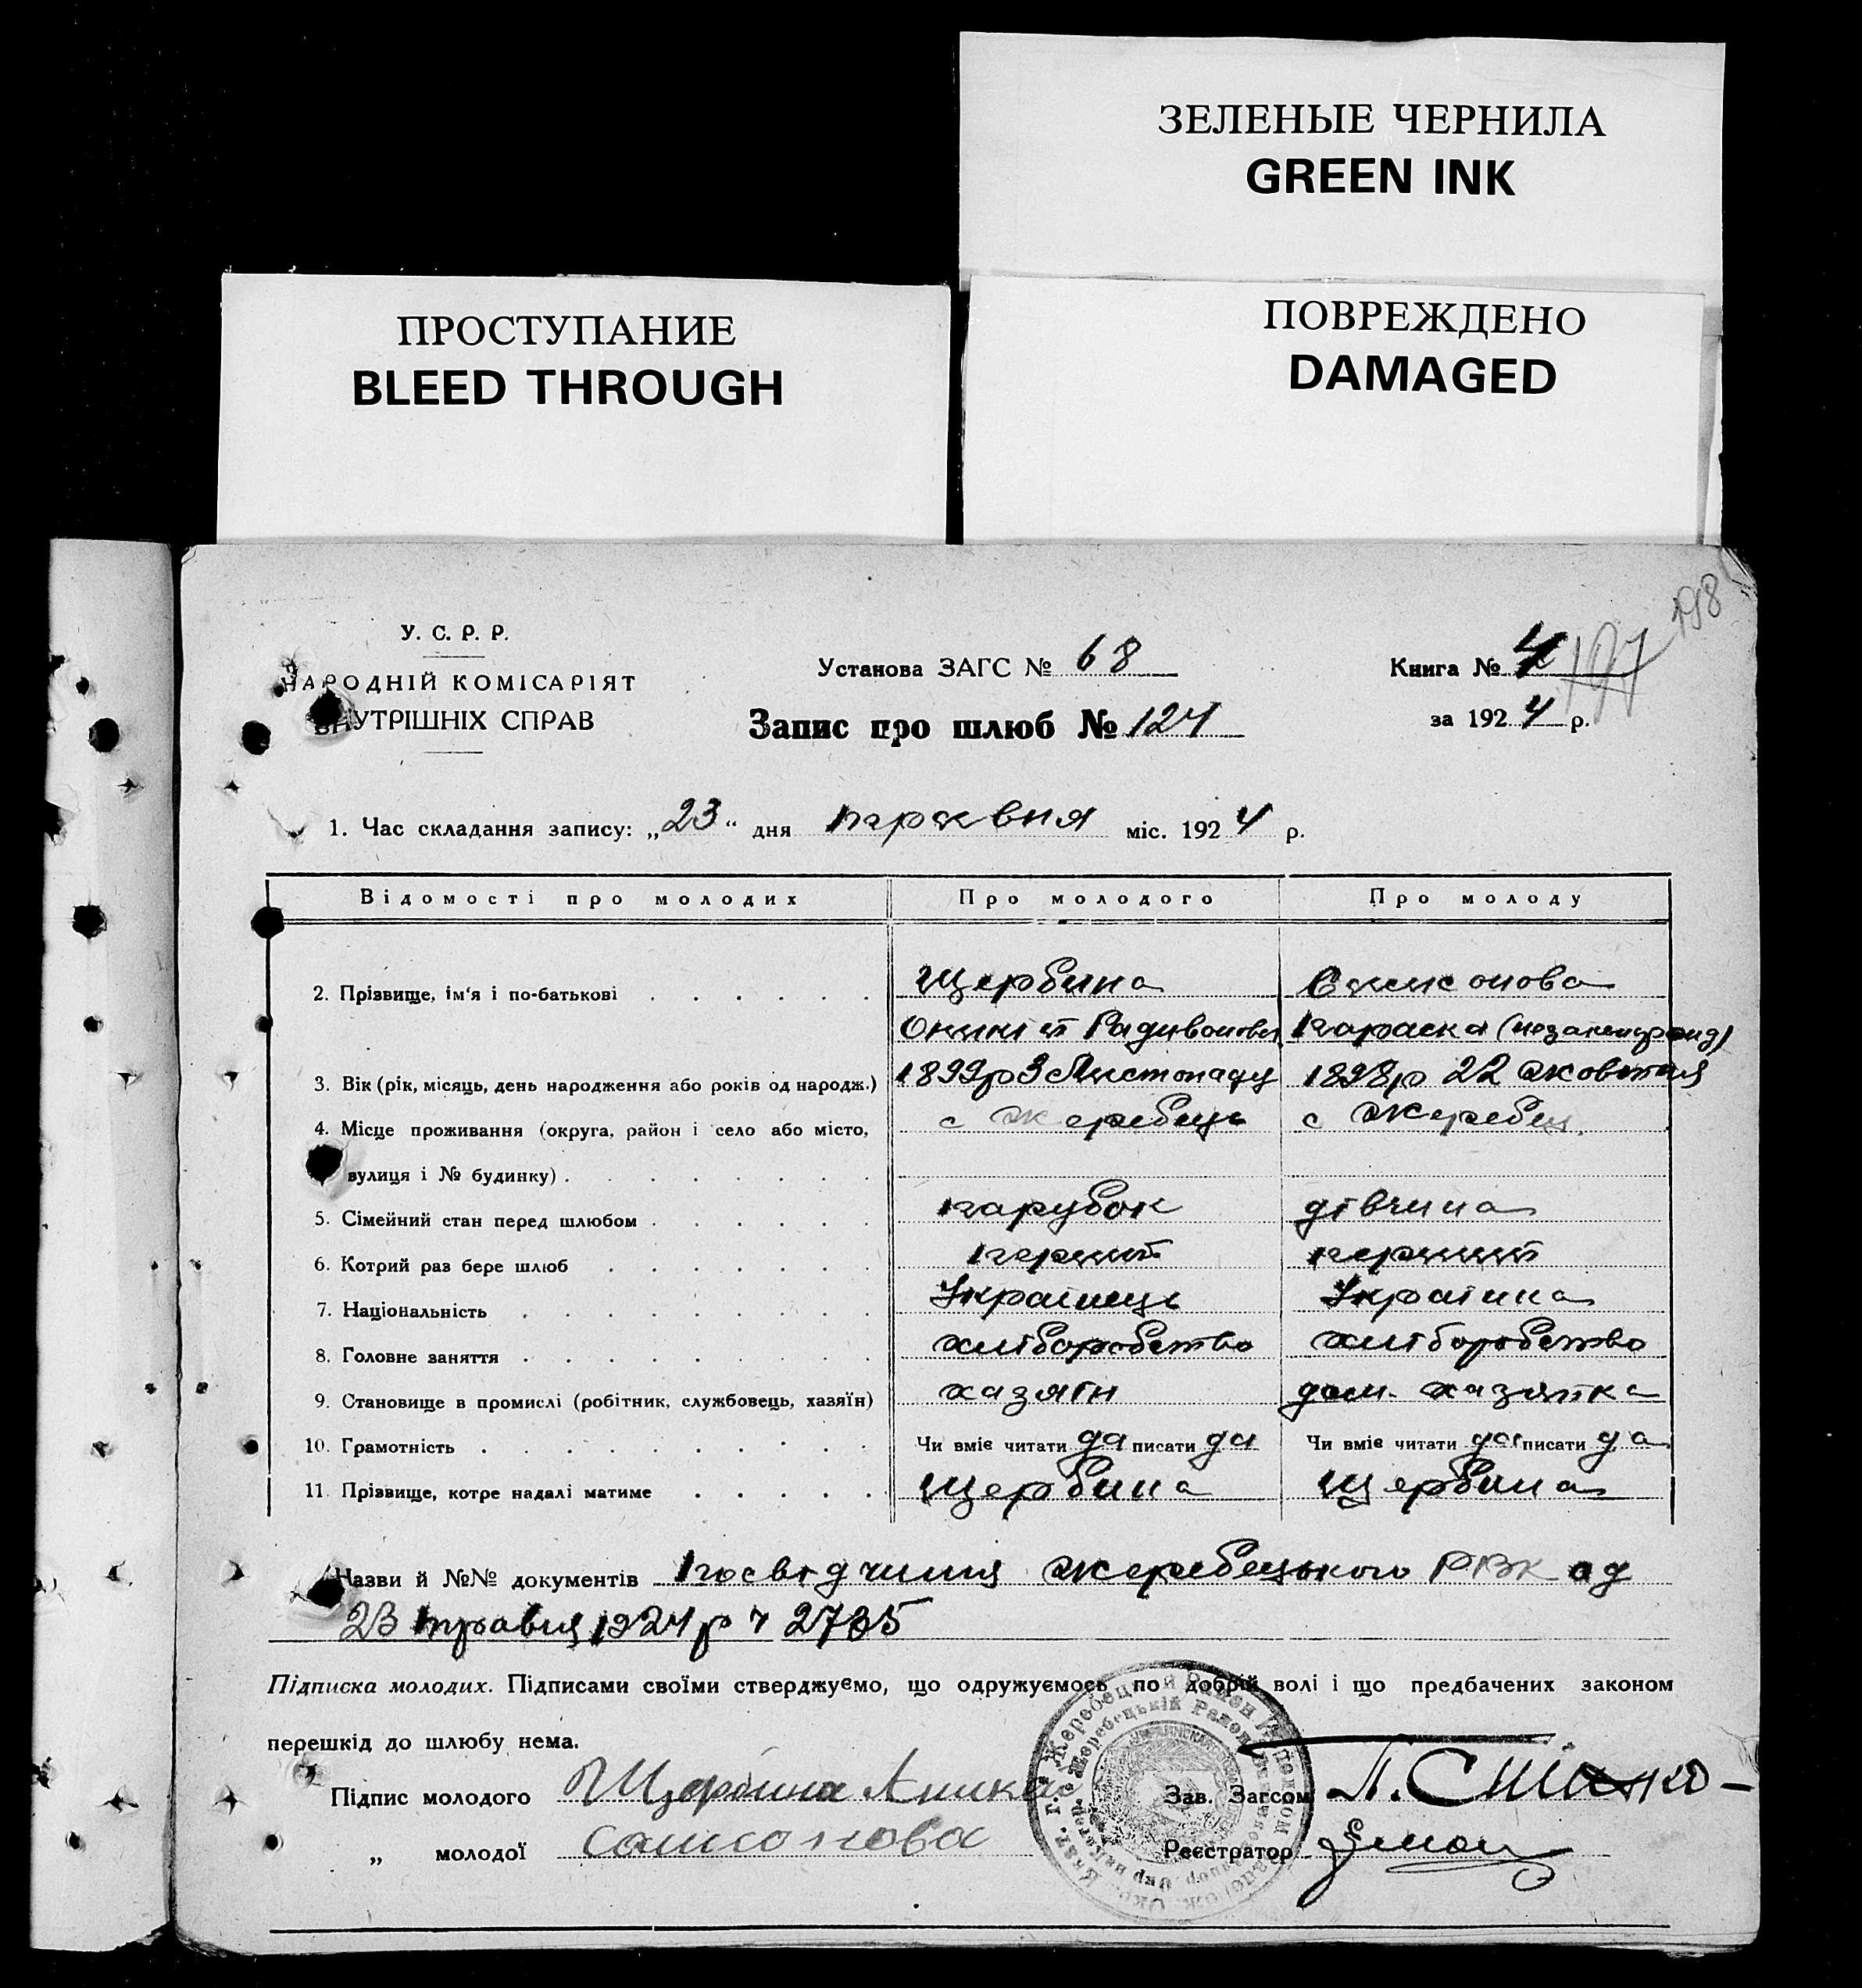 ЗЕЛЕНЫЕ ЧЕРНИЛА
GREEN INK
ПРОСТУПАНИЕ
BLEED THROUGH
ПОВРЕЖДЕНО
DAMAGED
198
197
У. С. Р. Р.
НАРОДНІЙ КОМІСАРІЯТ
ВНУТРІШНІХ СПРАВ
Установа ЗАГС № 68
Запис про шлюб № 124
Книга № 4
за 1924 р.
1. Час складання запису: „23“ дня травня міс. 1924 р.
Відомості про молодих Про молодого Про молоду
2. Прізвище, ім'я і по-батькові . . . . . . Щербина
Параска
3. Вік (рік, місяць, день народження або років од народж.) 1899р 3 Листопаду 1898р 22 жовтня
4. Місце проживання (округа, район і село або місто, с Жеребець с Жеребец
вулиця і № будинку) . . . . . . .
5. Сімейний стан перед шлюбом . . . . . . парубок дівчина
6. Котрий раз бере шлюб . . . . . . . перший перший
7. Національність . . . . . . . . Українець Україина
8. Головне заняття . . . . . . . . . хліборобство хліборобство
9. Становище в промислі (робітник, службовець, хазяїн) хазяїн дом. хазяйка
10. Грамотність . . . . . . . . . . Чи вміє читати да писати да Чи вміє читати да писати да
11. Прізвище, котре надалі матиме . . . . . Щербина Щербина
Назви й №№ документів Посвідчиння Жеребецького РВК од
23 травня 1924 р ч 2735
Підписка молодих. Підписами своїми стверджуємо, що одружуємось по добрій волі і що предбачених законом
перешкід до шлюбу нема.
Підпис молодого Щербина Аника
Зав. Загсом
„ молодої Самсонова
Реєстратор